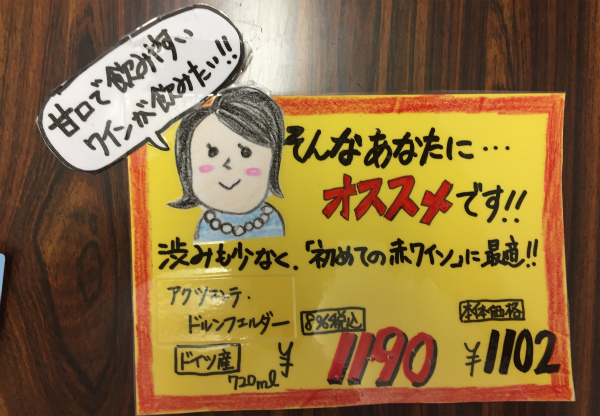 甘口で飲みやすい
ワインが飲みたい!!
そんなあなたに…
オススメです!!
渋みも少なく、「初めての赤ワイン」に最適!!
アクツェンテ・
ドルンフェルダー
ドイツ産
720ml
8%税込
¥1190
本体価格
¥1102